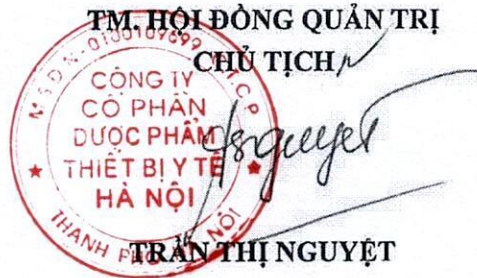 TM. HỘI ĐỒNG QUẢN TRỊ
CHỦ TỊCH
M.S.D.N-0100109699
CÔNG TY
CỔ PHẦN
DƯỢC PHẨM
THIẾT BỊ Y TẾ
HÀ NỘI
THÀNH PHỐ NỘI
TRẦN THỊ NGUYỆT